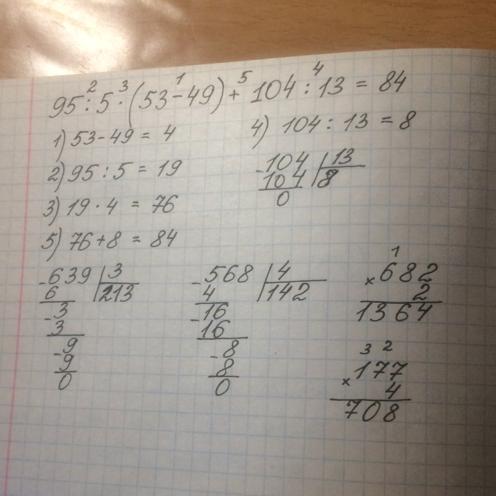 95 : 5 · (53 - 49) + 104 : 13 = 84
2 3 1 5 4
1) 53 - 49 = 4
2) 95 : 5 = 19
3) 19 · 4 = 76
5) 76 + 8 = 84
4) 104 : 13 = 8
- 104 | 13
104 | 8
0
- 639 | 3
6 | 213
- 3
3
- 9
9
0
- 568 | 4
4 | 142
- 16
16
- 8
8
0
1
× 682
2
1364
3 2
× 177
4
708